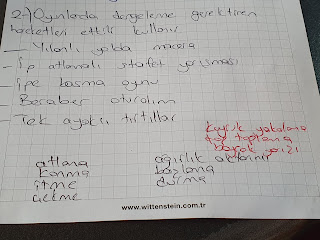 2-) Oyunlarda dengeleme gerektiren
hareketleri etkili kullanır
— Yılanlı yolda macera
— İp atlamalı stafet yarışması
— İpe basma oyunu
— Beraber oturalım
— Tek ayaklı tırtıllar
kaşık yakalama
top toplama
bayrak yarışı
atlama
konma
itme
çekme
ağırlık aktarımı
başlama
durma
www.wittenstein.com.tr